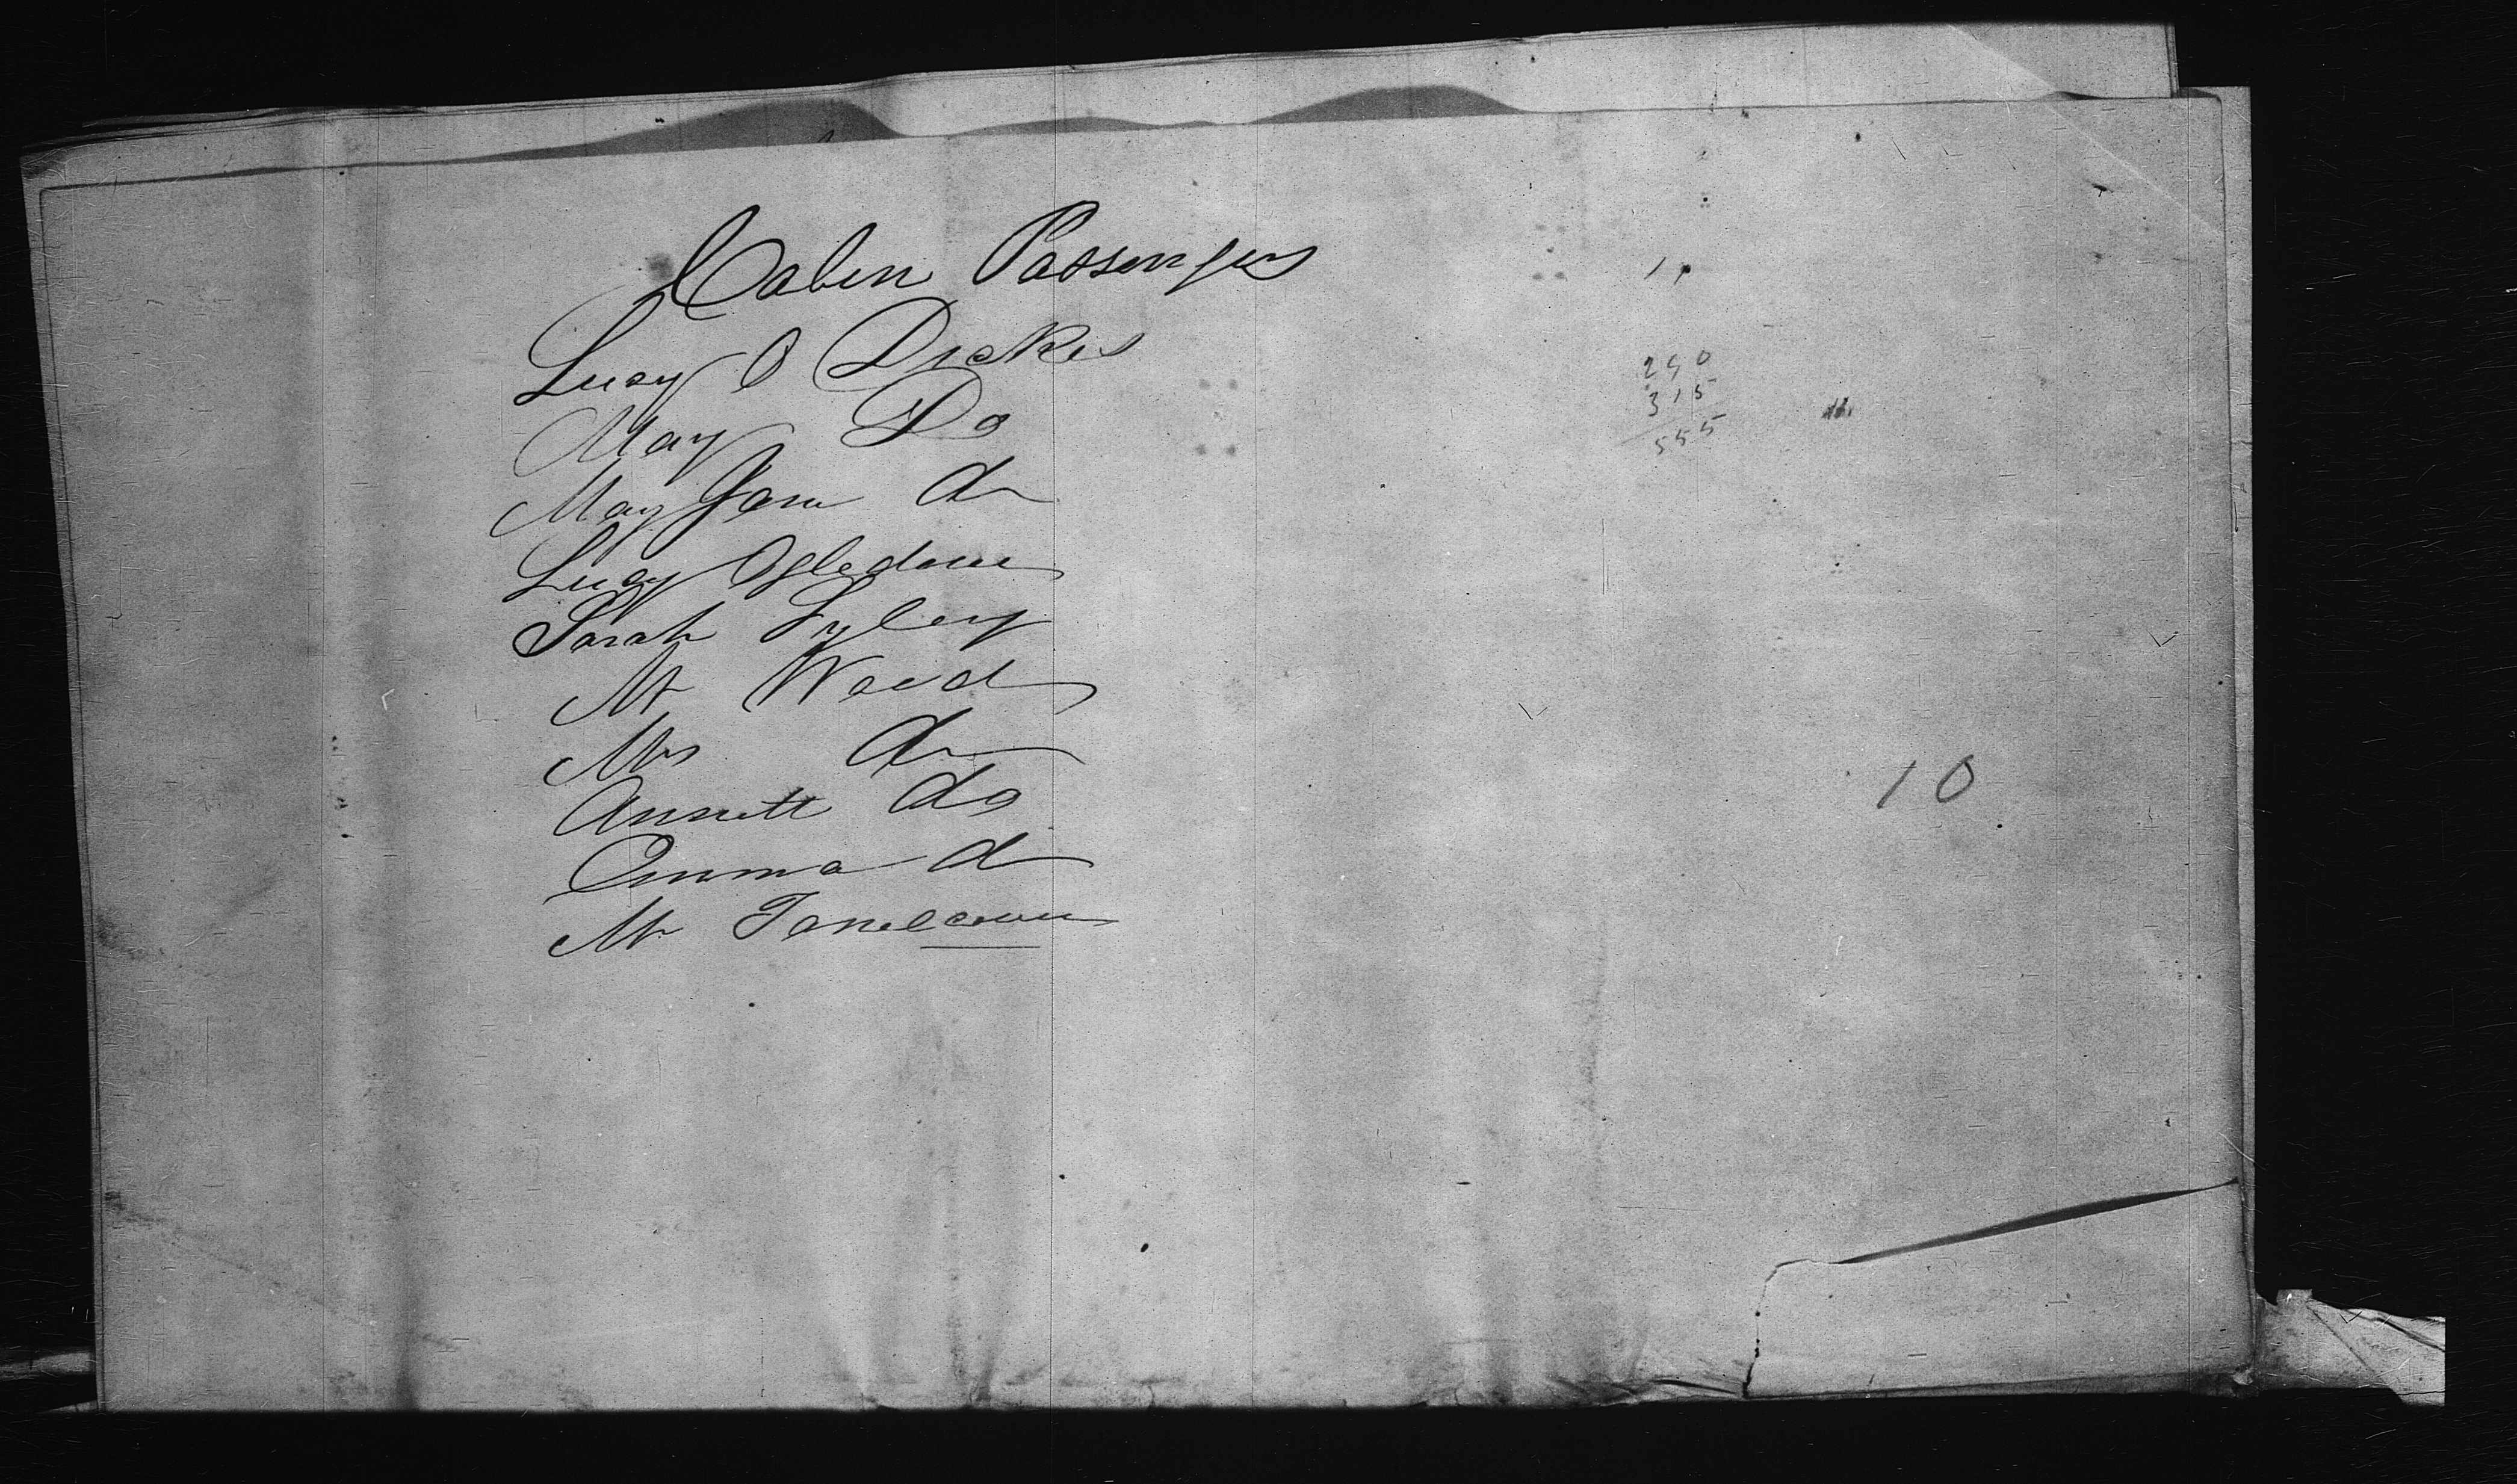 Cabin Passengers
Lucy O Dickes
Mary Do
Mary Jane do
Lucy Ogledown
Sarah Syley
Mr Wood
Mrs do
Annett do
Emma do
Mr
240
315
555
10